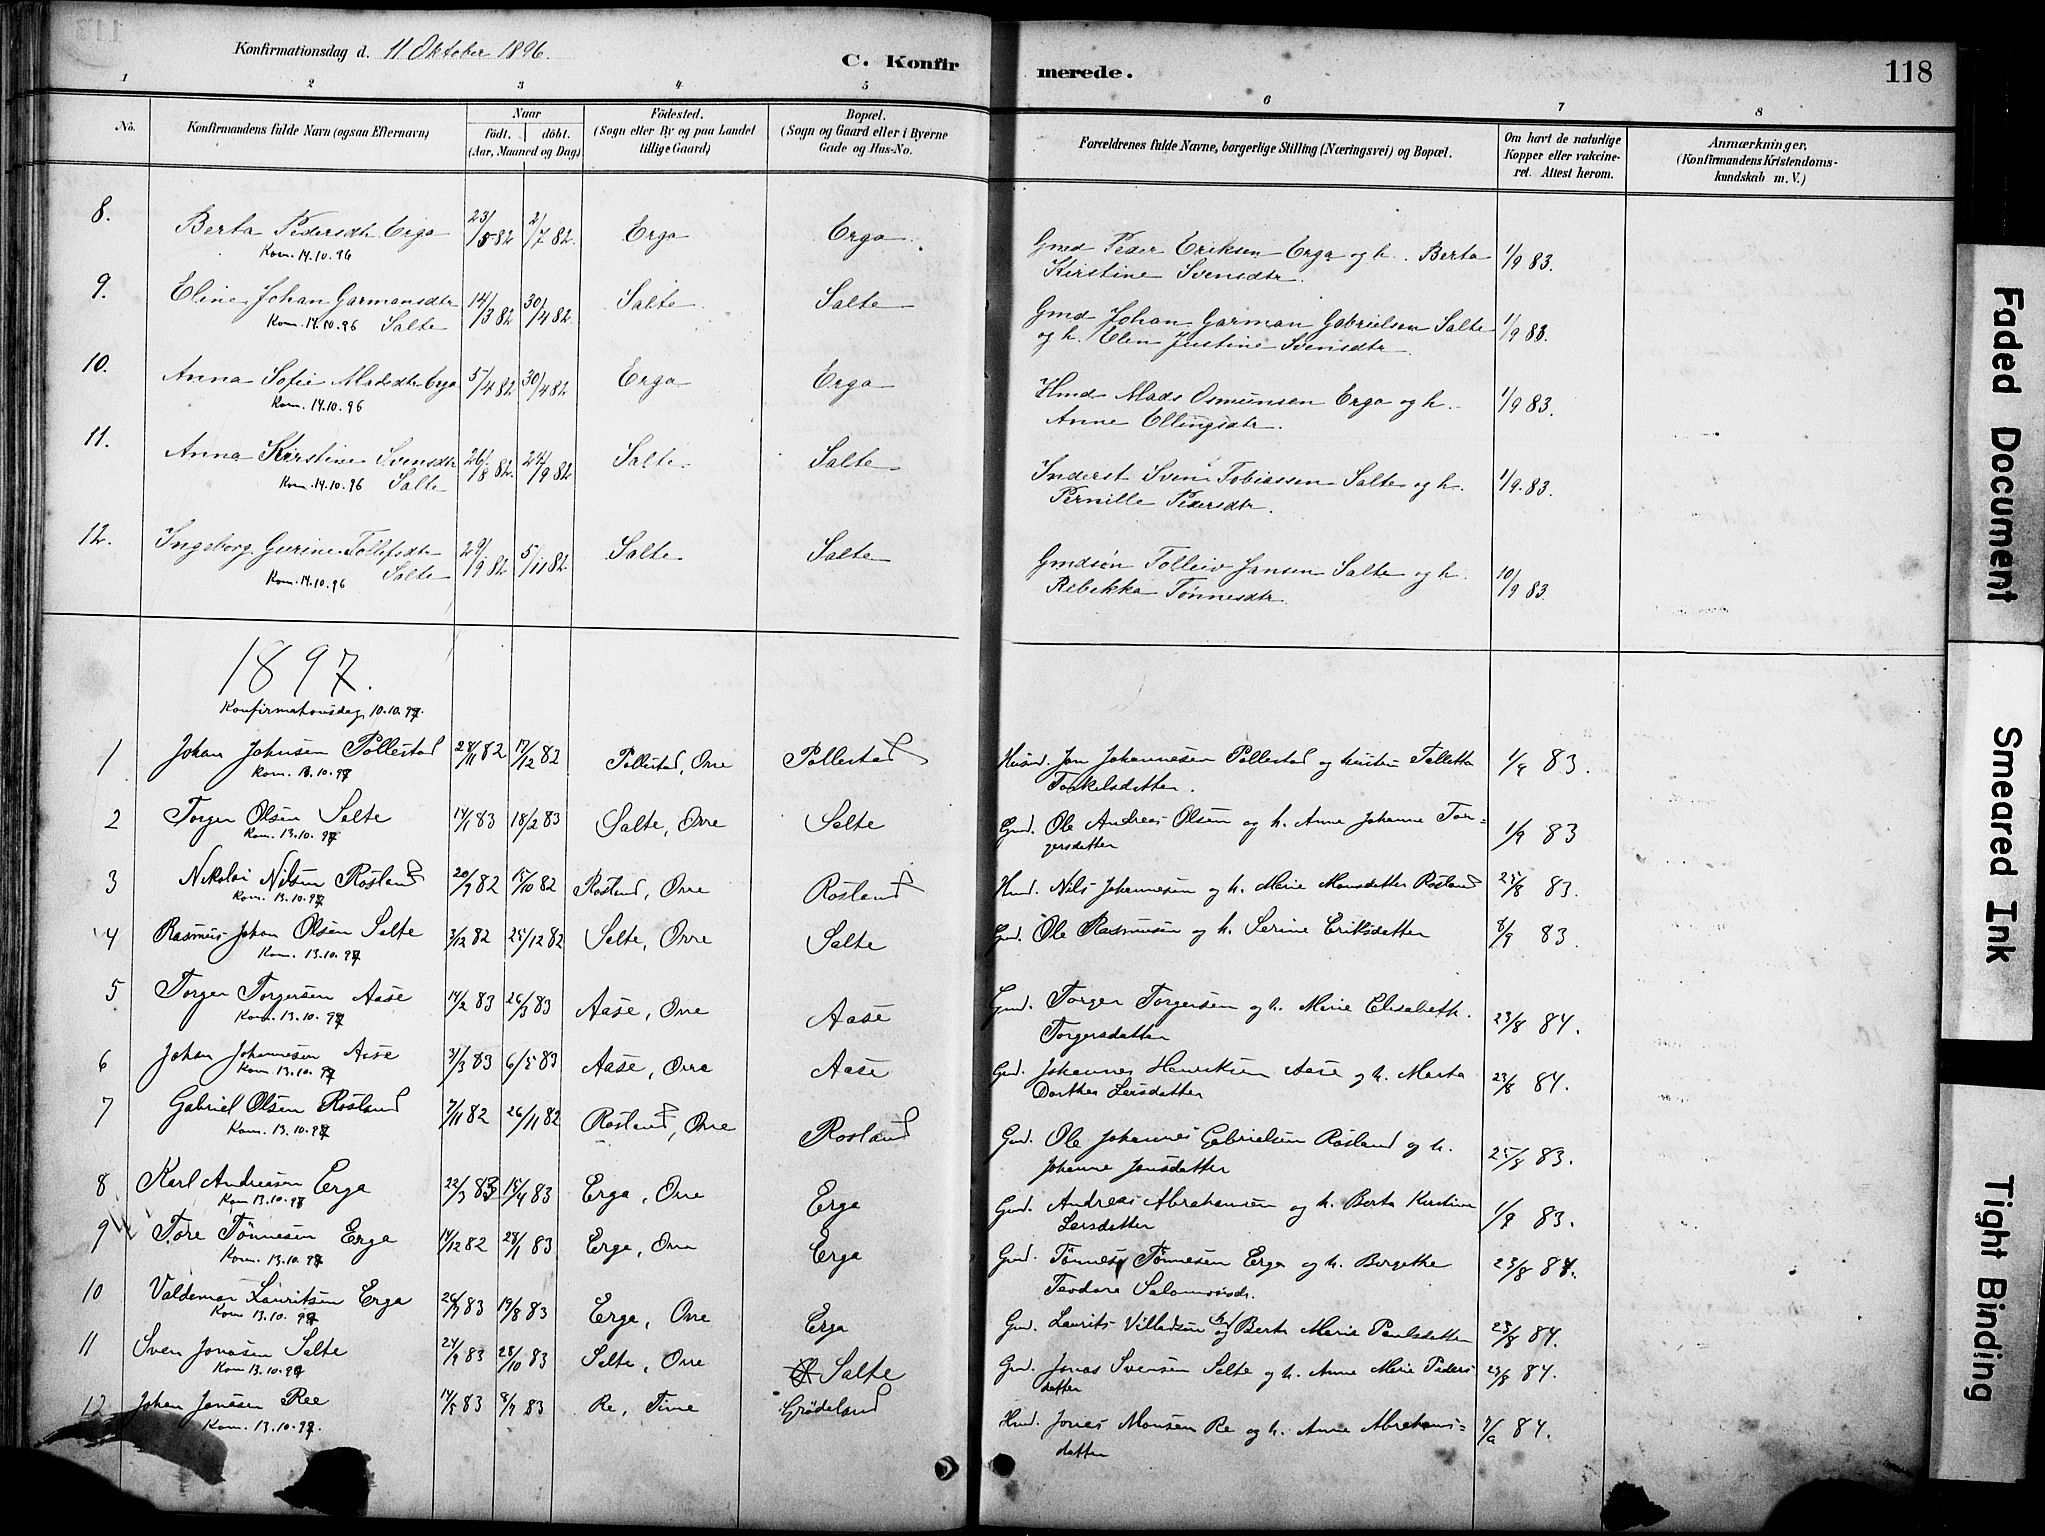 Konfirmationsdag d. 11 Oktober 1896.
C. Konfirmerede.
118
1 2 3 4 5 6 7 8
No.
Konfirmandens fulde Navn (ogsaa Efternavn)
Naar
födt. döbt.
(Aar, Maaned og Dag)
Födested.
(Sogn eller By og paa Landet
tillige Gaard)
Bopæl.
(Sogn og Gaard eller i Byerne
Gade og Hus-No.
Forældrenes fulde Navne, borgerlige Stilling (Næringsvei) og Bopæl.
Om havt de naturlige
Kopper eller vakcine-
ret. Attest herom.
Anmærkninger,
(Konfirmandens Kristendoms-
kundskab m. V.)
8. Berta Pedersdtr Erga 23/5 82 2/7 82. Erga Erga Gmd Peder Eriksen Erga og h. Berta 1/9 83.
Kom. 14.10.96 Kirstine Svensdtr.
9. Eline Johan Garmansdtr 14/3 82 30/4 82. Salte Salte Gmd Johan Garman Gabrielsen Salte 1/9 83.
Kom. 14.10.96 Salte og h. Elen Justine Svensdtr.
10. Anna Sofie Madsdtr Erga 5/4 82 30/4 82 Erga Erga Hmd Mads Osmunsen Erga og h. 1/9 83.
Kom. 14.10.96 Anne Ellingsdtr.
11. Anna Kirstine Svensdtr 26/8 82. 24/9 82 Salte Salte Inderst Sven Tobiassen Salte og h. 1/9. 83.
Kom. 14.10.96 Salte Pernille Pedersdtr.
12. Ingeborg Gurine Tollefsdtr 29/9 82 5/11 82 Salte Salte Gmdsøn Tolleiv Jansen Salte og h. 10/9 83.
Kom. 14.10.96 Salte Rebekka Tønnesdtr.
1897.
Konfirmationsdag 10.10.97.
1 Johan Johnsen Pollestad 28/11 82 17/12 82 Pollestad, Orre Pollestad Husmd. Jon Johannesen Pollestad og hustru Talletta 1/9 83.
Kom. 13.10.97 Torkelsdatter.
2 Torger Olsen Salte 14/1 83 18/2 83 Salte, Orre Salte Gmd. Ole Andreas Olsen og h. Anne Johanne Tor- 1/9 83
Kom. 13.10.97 gersdatter
3 Nikolai Nilsen Rosland 20/9 82 15/10 82 Rosland, Orre Rosland Hmd. Nils Johannesen og h. Marie Monsdatter Rosland 25/8 83.
Kom. 13.10.97
4 Rasmus Johan Olsen Salte 3/12 82 25/12 82 Salte, Orre Salte Gmd. Ole Rasmusen og h. Serine Eriksdatter 8/9 83.
Kom. 13.10.97
5 Torger Torgersen Aase 14/2 83 26/3 83 Aase, Orre Aase Gmd. Torger Torgersen og h. Marie Elisabeth 23/8 84.
Kom. 13.10.97 Torgersdatter
6 Johan Johannesen Aase 31/3 83 6/5 83 Aase, Orre Aase Gmd. Johannes Henriksen Aase og h. Marta 23/8 84.
Kom. 13.10.97 Dorthea Larsdatter
7 Gabriel Olsen Rosland 7/11 82 26/11 82 Rosland, Orre Rosland Gmd. Ole Johannes Gabrielsen Rosland og h. 25/8 83.
Kom. 13.10.97 Johanne Jonsdatter
8 Karl Andreasen Erga 22/3 83 15/4 83 Erga, Orre Erga Gmd. Andreas Abrahamsen og h. Berta Kirstine 1/9 83.
Kom 13.10.97 Larsdatter
9 Tore Tønnesen Erga 14/12 82 28/1 83 Erga, Orre Erga Gmd. Tønnes Tønnesen Erga og h. Bergethe 23/8 84.
Kom. 13.10.97 Teodora Salomonsdr.
10 Valdemar Lauritsen Erga 26/7 83 19/8 83 Erga, Orre Erga Gmd. Laurits Villadsen og h. Berta Marie Paulsdatter 23/8 84.
Kom 13.10.97
11 Sven Jonasen Salte 24/9 83 28/10 83 Salte, Orre Salte Gmd. Jonas Svensen Salte og h. Anne Marie Peders- 23/8 84.
Kom 13.10.97 datter
12 Johan Jonasen Ree 14/5 83 8/7 83 Re, Time Grødeland Hmd. Jonas Monsen Re og h. Anne Abrahams- 84.
Kom. 13.10.97. datter
Faded Document
Smeared Ink
Tight Binding